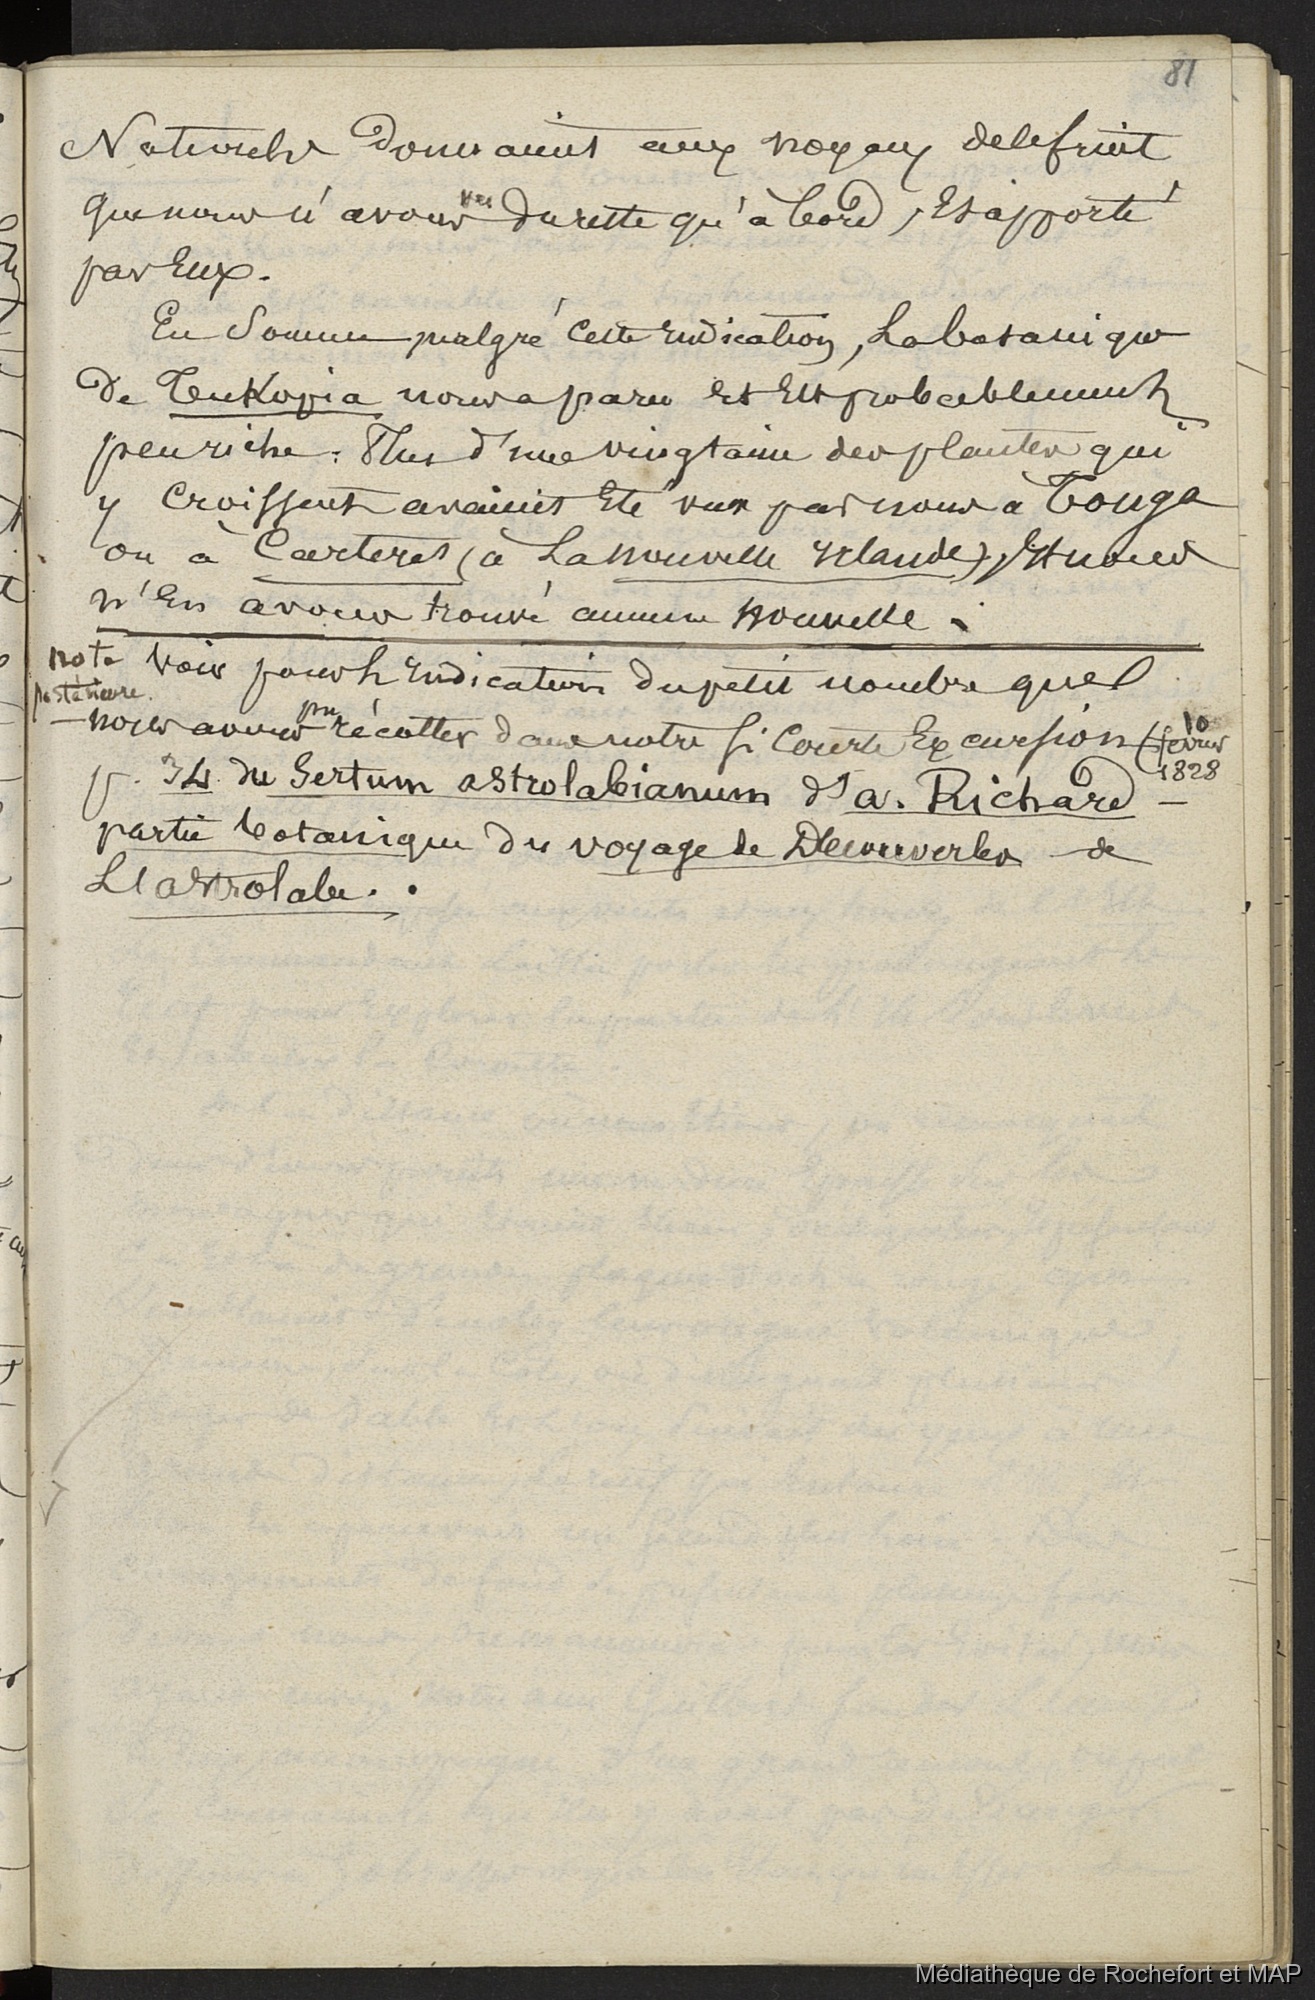 81
Naturels donnaient aux noyaux de le fruit
que nous n'avons vu du reste qu'à bord, Et apporté
par Eux.
En Somme malgré cette indication, La botanique
de Teukopia nous a paru et Est probablement
peu riche. Plus d'une vingtaine des plantes qui
y croissent avaient Eté vues par nous à Tonga
ou à Carteret (à La nouvelle Irlande), Et nous
n'En avons trouvé aucune Nouvelle.
note postérieure.
Voir pour l'indication du petit nombre que
nous avons pu récolter dans notre si Courte Excursion (10 février 1828
p. 34 du Sertum astrolabianum d'a. Richard –
partie botanique du voyage de Découvertes de
L'astrolabe.
Médiathèque de Rochefort et MAP